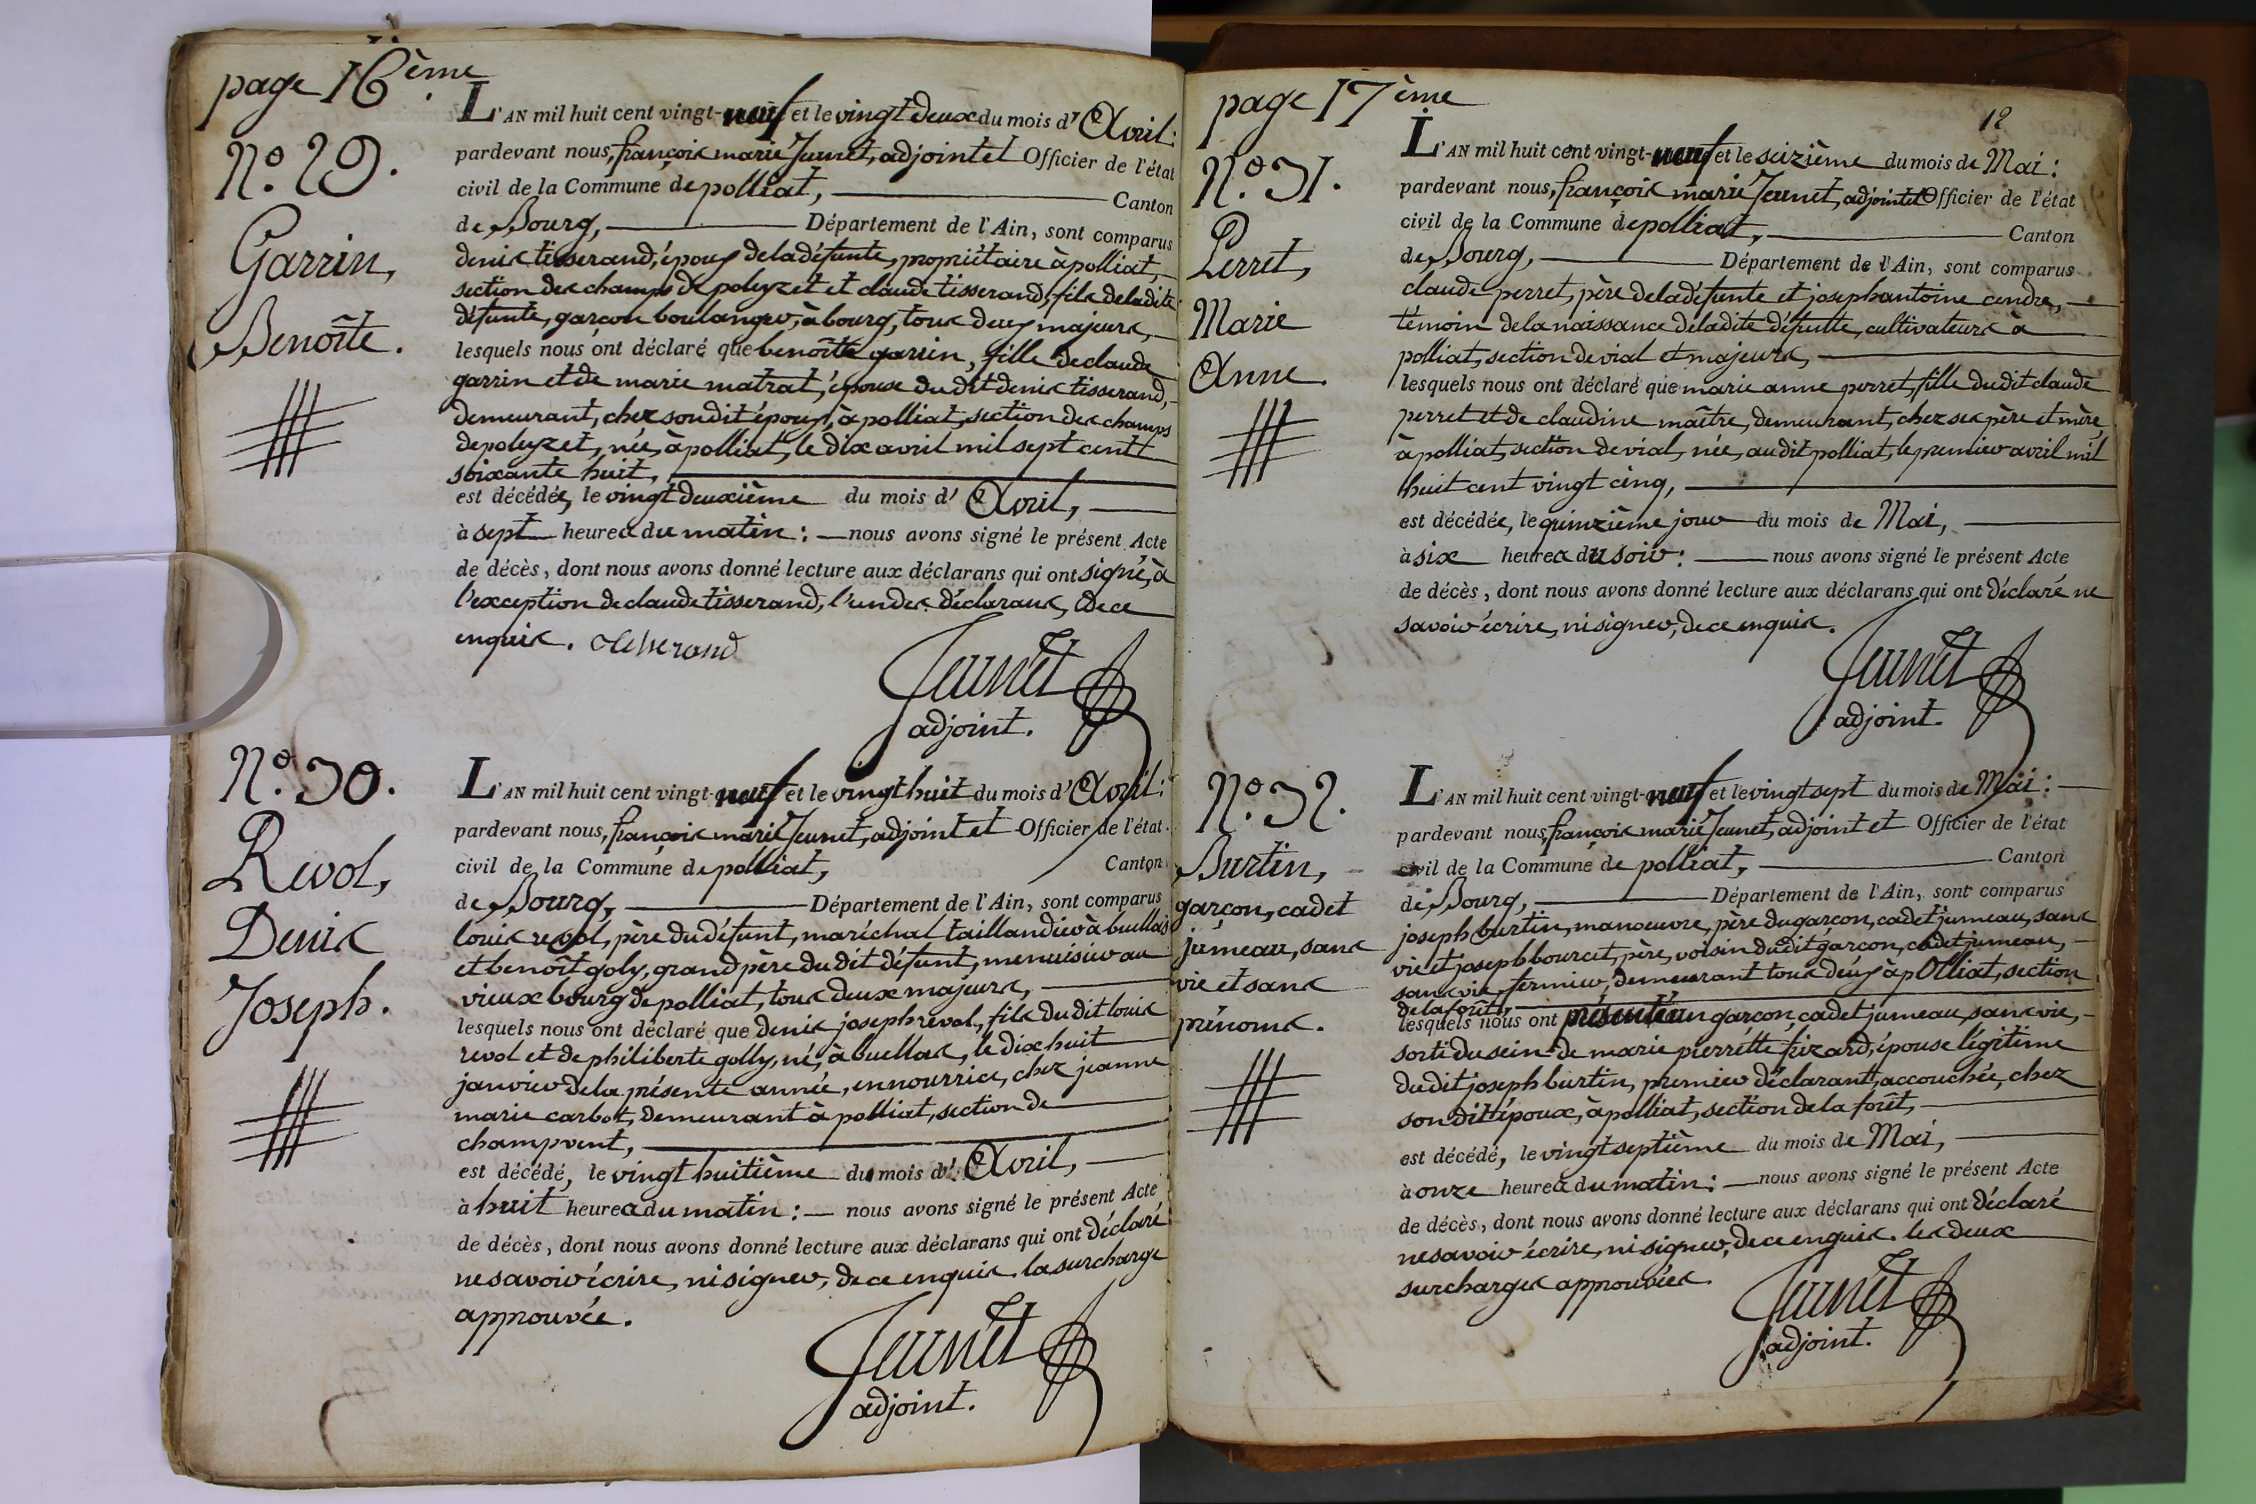 page 16ème.
N.º 29.
Garrin,
Benoîte.
L'AN mil huit cent vingt-neuf et le vingt deux du mois d' Avril:
pardevant nous, françois marie Jeunet, adjoint et Officier de l'état
civil de la Commune de polliat, Canton
de Bourg, Département de l'Ain, sont comparus
denis tisserand, époux de la défunte, propriétaire à polliat,
section des champs de poleyzet et claude tisserand, fils de ladite
défunte, garçon boulanger, à bourg, tous deux majeurs,
lesquels nous ont déclaré que benoîte garrin, fille de claude
garrin et de marie matrat, épouse du dit denis tisserand,
demeurant, chez son dit époux, à polliat, section des champs
de poleyzet, née, à polliat, le dix avril mil sept cent
soixante huit,
est décédée, le vingt deuxième du mois d' Avril,
à sept heures du matin: nous avons signé le présent Acte
de décès, dont nous avons donné lecture aux déclarans qui ont signé, à
l'exception de claude tisserand, l'un des déclarans, de ce
enquis. tisserand
Jeunet
adjoint.
N.º 30.
Revol,
Denis
Joseph.
L'AN mil huit cent vingt-neuf et le vingt huit du mois d' Avril:
pardevant nous, françois marie Jeunet, adjoint et Officier de l'état
civil de la Commune de polliat, Canton
de Bourg, Département de l'Ain, sont comparus
louis revol, père du défunt, maréchal taillandier à buellas
et benoît goly, grand père du dit défunt, menuisier au
vieux bourg de polliat, tous deux majeurs,
lesquels nous ont déclaré que denis joseph revol, fils du dit louis
revol et de philiberte golly, né, à buellas, le dix huit
janvier de la présente année, en nourrice, chez jeanne
marie carbot, demeurant à polliat, section de
champvent,
est décédé, le vingt huitième du mois d' Avril,
à huit heures du matin: nous avons signé le présent Acte
de décès, dont nous avons donné lecture aux déclarans qui ont déclaré
ne savoir écrire, ni signer, de ce enquis. la surcharge
approuvée.
Jeunet
adjoint.
page 17ème
18
N.º 31.
Perret,
Marie
Anne.
L'AN mil huit cent vingt-neuf et le seizième du mois de Mai:
pardevant nous, françois marie Jeunet, adjoint et Officier de l'état
civil de la Commune de polliat, Canton
de Bourg, Département de l'Ain, sont comparus
claude perret, père de la défunte et joseph antoine cendre,
témoin de la naissance de ladite défunte, cultivateurs à
polliat, section de vial et majeurs,
lesquels nous ont déclaré que marie anne perret, fille du dit claude
perret et de claudine maître, demeurant, chez ses père et mère,
à polliat, section de vial, née, au dit polliat, le premier avril mil
huit cent vingt cinq,
est décédée, le quinzième jour du mois de Mai,
à six heures du soir: nous avons signé le présent Acte
de décès, dont nous avons donné lecture aux déclarans qui ont déclaré ne
savoir écrire, ni signer, de ce enquis.
Jeunet
adjoint.
N.º 32.
Burtin,
garçon, cadet
jumeau, sans
vie et sans
prénoms.
L'AN mil huit cent vingt-neuf et le vingt sept du mois de Mai:
pardevant nous, françois marie Jeunet, adjoint et Officier de l'état
civil de la Commune de polliat, Canton
de Bourg, Département de l'Ain, sont comparus
joseph burtin, manoeuvre, père du garçon, cadet jumeau, sans
vie et joseph bourcet, père, voisin du dit garçon, cadet jumeau,
sans vie, fermier, demeurant tous deux à polliat, section
de la forêt,
lesquels nous ont présenté un garçon, cadet jumeau, sans vie,
sorti du sein de marie pierrette frizard, épouse légitime
du dit joseph burtin, premier déclarant, accouchée, chez
son dit époux, à polliat, section de la forêt,
est décédé, le vingt septième du mois de Mai,
à onze heures du matin: nous avons signé le présent Acte
de décès, dont nous avons donné lecture aux déclarans qui ont déclaré
ne savoir écrire, ni signer, de ce enquis. les deux
surcharges approuvées.
Jeunet
adjoint.